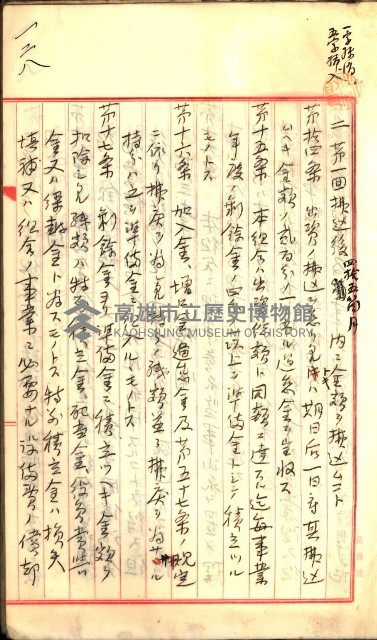 一字抹消
五字挿入
一六八
二 第一回拂込後四拾五箇月内ニ全額ヲ拂込ムコト
第拾四条 出資ノ拂込ヲ怠リタルトキハ期日后一日ニ付其拂込
ムヘキ金額ノ貳百分ノ一
過怠金ヲ徴收ス
第十五条 本組合ハ出資総額ト同額ニ達スル迄毎事業
年度ノ剰餘金ノ四分ノ一以上ヲ準備金トシテ積立ツル
モノトス
第十六条 加入金、増口金、過怠金及第五十七条ノ規定
ニ依リ拂戻ヲ為サヽル持分額並ニ拂戻ヲ為サヽル
持分ハ之ヲ準備金ニ
モノトス
第十七条 剰餘金ヨリ準備金ニ積立ツヘキ金額ヲ
扣除シタル残額ハ特別積立金、配当金、役員賞與
金又ハ繰越金ト為スモノトス特別積立金ハ損失
填補又ハ組合ノ事業ニ必要ナル設備費ノ償却
高雄市立歷史博物館
KAOHSIUNG MUSEUM OF HISTORY